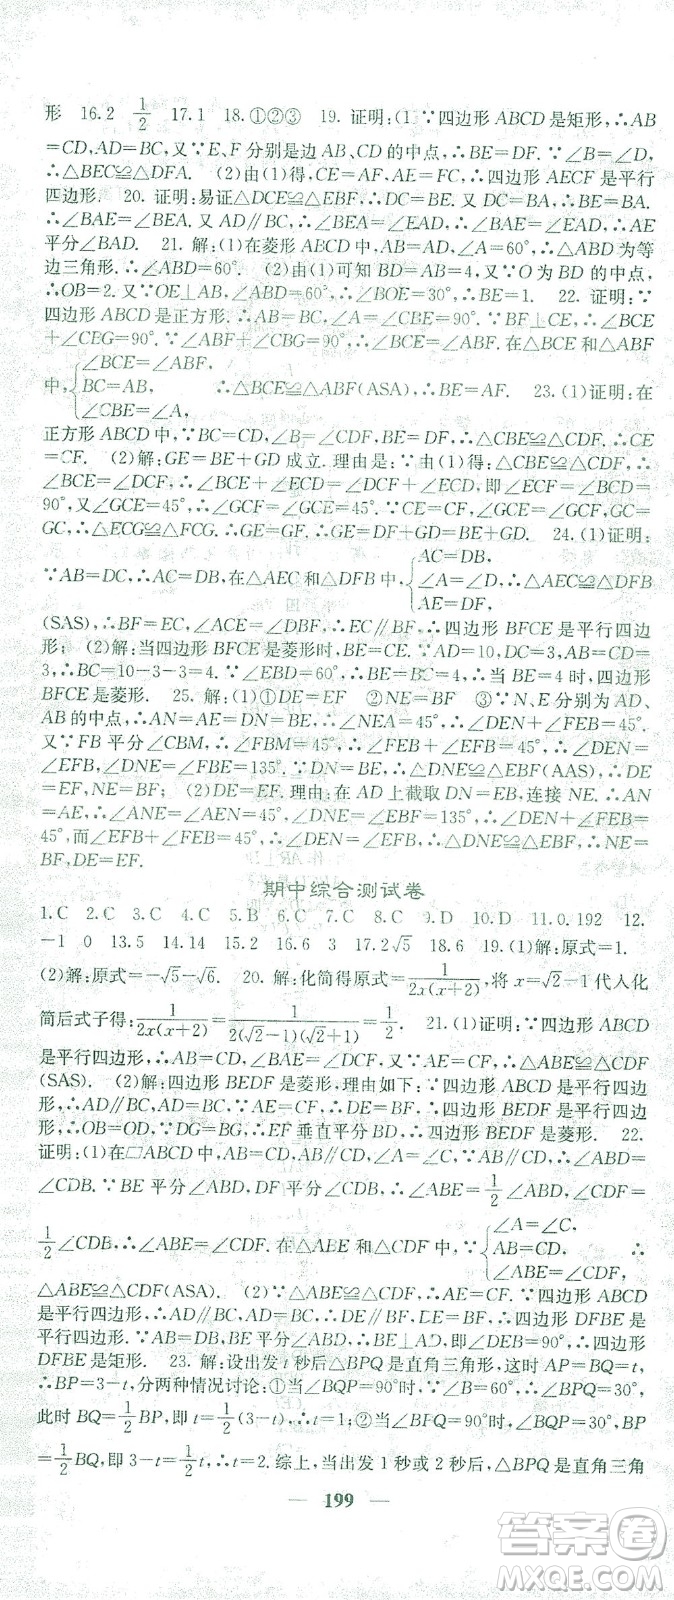 形 16.2 1/2 17.1 18.①②③ 19. 证明:(1∵四边形 ABCD 是矩形,∴AB
=CD,AD=BC,又∵E、F 分别是边 AB、CD 的中点,∴BE=DF.∵∠B=∠D,
∴△BEC≌△DFA. (2)由(1)得,CE=AF,AE=CF,∴四边形 AECF 是平行
四边形. 20. 证明:易证△DCE≌△EBF,∴DC=BE.又∵DC=BA,∴BE=BA.
∴∠BAE=∠BEA.又∵AD∥BC,∴∠BEA=∠EAD,∴∠BAE=∠EAD,∴AE
平分∠BAD. 21. 解:(1)在菱形 ABCD 中,∵AB=AD,∠A=60°,∴△ABD 为等
边三角形.∴∠ABD=60°. (2)由(1)可知 BD=AB=4,又∵O为BD 的中点,
∴OB=2.又∵OE⊥AB,∠ABD=60°,∴∠BOE=30°,∴BE=1. 22. 证明:∵
四边形 ABCD 是正方形.∴AB=BC,∠A=∠CBE=90°.∵BF⊥CE,∴∠BCE
+∠CBG=90°.∵∠ABF+∠CBG=90°,∴∠BCE=∠ABF.在△BCE 和△ABF
中,{∠BCE=∠ABF, BC=AB, ∠CBE=∠A, ∴△BCE≌△ABF(ASA),∴BE=AF. 23.(1)证明:在
正方形 ABCD 中,∵BC=CD,∠B=∠CDF,BE=DF,∴△CBE≌△CDF.∴CE
=CF. (2)解:GE=BE+GD 成立.理由是:∵由(1)得:△CBE≌△CDF,∴
∠BCE=∠DCF,∴∠BCE+∠ECD=∠DCF+∠ECD,即∠ECF=∠BCD=
90°,又∠GCE=45°,∴∠GCF=∠GCE=45°.∵CE=CF,∠GCE=∠GCF,GC=
GC,∴△ECG≌△FCG.∴GE=GF.∴GE=DF+GD=BE+GD. 24.(1)证明:
∵AB=DC,∴AC=DB,在△AEC 和△DFB 中{AC=DB, ∠A=∠D, AE=DF, ∴△AEC≌△DFB
(SAS),∴BF=EC,∠ACE=∠DBF,∴EC∥BF,∴四边形 BFCE 是平行四边
形; (2)解:当四边形 BFCE 是菱形时,BE=CE,∵AD=10,DC=3,AB=CD=
3,∴BC=10-3-3=4.∵∠EBD=60°,∴BE=BC=4,∴当 BE=4 时,四边形
BFCE 是菱形. 25. 解:(1)①DE=EF ②NE=BF ③∵N、E 分别为 AD、
AB 的中点,∴AN=AE=DN=BE,∴∠NEA=45°,∴∠DEN+∠FEB=45°.
又∵FB 平分∠CBM,∴∠FBM=45°,∴∠FEB+∠EFB=45°,∴∠DEN=
∠EFB,∠DNE=∠FBE=135°.∵DN=BE,∴△DNE≌△EBF(AAS),∴DE=
EF,NE=BF; (2)DE=EF.理由:在 AD 上截取 DN=EB,连接 NE.∴AN
=AE,∴∠ANE=∠AEN=45°,∴∠DNE=∠EBF=135°.∵∠DEN+∠FEB=
45°,而∠EFB+∠FEB=45°,∴∠DEN=∠EFB,∴△DNE≌△EBF,∴NE=
BF,DE=EF.
期中综合测试卷
1.C 2.C 3.C 4.D 5.B 6.C 7.C 8.C 9.D 10.D 11.0.192 12.
-1 0 13.5 14.14 15.2 16.6 3 17.2√5 18.2 19.(1)解:原式=1.
(2)解:原式=-√5-√6. 20. 解:化简得原式=1/2x(x+2),将 x=√2-1 代入化
简后式子得:1/2x(x+2)=1/2(√2-1)(√2+1)=1/2. 21.(1)证明:∵四边形 ABCD
是平行四边形,∴AB=CD,∠BAE=∠DCF.又∵AE=CF,∴△ABE≌△CDF
(SAS). (2)解:四边形 BEDF 是菱形,理由如下:∵四边形 ABCD 是平行四边
形,∴AD∥BC,AD=BC.∵AE=CF,∴DE=BF,∴四边形 BEDF 是平行四边形,
∴OB=OD.∵DG=BG,∴EF 垂直平分 BD,∴四边形 BEDF 是菱形. 22.
证明:(1)在▱ABCD 中,AB=CD,AB∥CD,∠A=∠C,∵AB∥CD,∴∠ABD=
∠CDB.∵BE 平分∠ABD,DF 平分∠CDB,∴∠ABE=1/2∠ABD,∠CDF=
1/2∠CDB,∴∠ABE=∠CDF.在△ABE 和△CDF 中,∵{∠A=∠C, AB=CD, ∠ABE=∠CDF,
∴△ABE≌△CDF(ASA). (2)∵△ABE≌△CDF,∴AE=CF,∵四边形 ABCD
是平行四边形,∴AD∥BC,AD=BC,∴DE∥BF,DE=BF,∴四边形 DFBE 是
平行四边形.∵AB=DB,BE 平分∠ABD,∴BE⊥AD,即∠DEB=90°.∴四边形
DFBE 是矩形. 23. 解:设出发 t 秒后△BPQ 是直角三角形,这时 AP=BQ=t,
∴BP=3-t,分两种情况讨论:①当∠BQP=90°时,∵∠B=60°,∴∠BPQ=30°,
此时 BQ=1/2BP,即 t=1/2(3-t),∴t=1;②当∠BPQ=90°时,∠BQP=30°,BP
=1/2BQ,即 3-t=1/2t,∴t=2.综上,当出发 1 秒或 2 秒后,△BPQ 是直角三角
— 199 —
答案圈
MXQE.COM